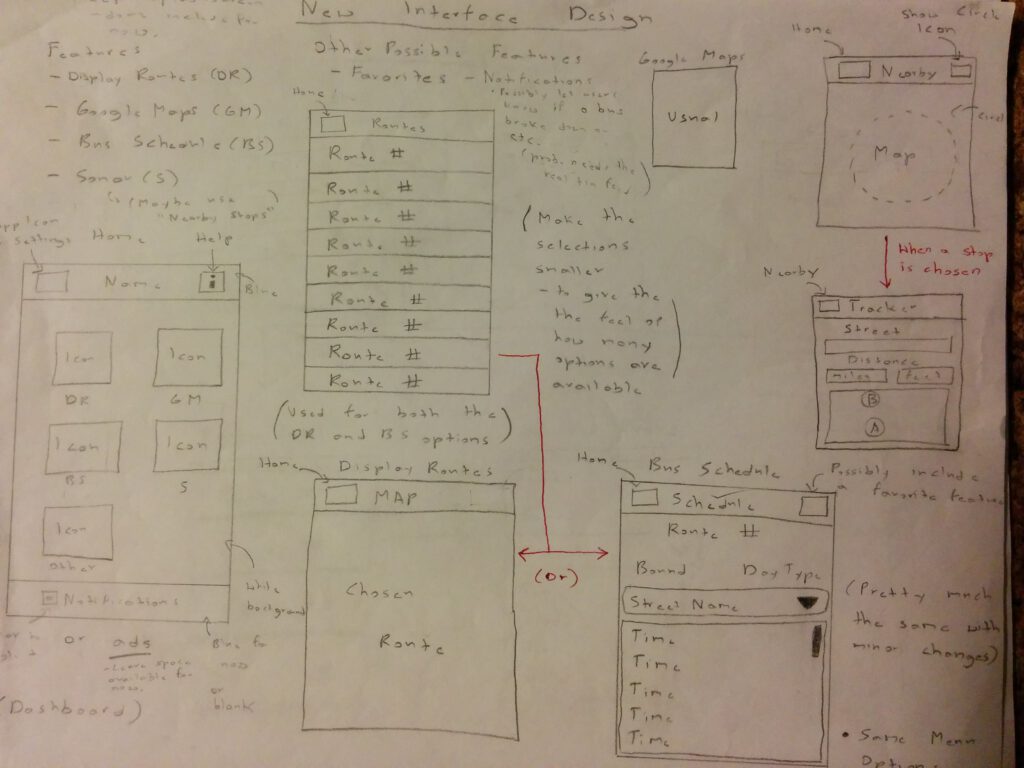 New Interface Design
now.
Features
- Display Routes (DR)
- Google Maps (GM)
- Bus Schedule (BS)
- Sonar (S)
(Maybe use
"Nearby Stops"
App Icon
settings
Home
Help
Name
Blue
Icon
Icon
DR
GM
Icon
Icon
BS
S
Icon
Other
White
background
Notifications
or ads
Leave space
available for
now.
Blue for
now
or
blank
(Dashboard)
Other Possible Features
- Favorites - Notifications
• Possibly let users
know if a bus
broke down or
etc.
(prob. needs the
real time feed)
Home
Routes
Route #
Route #
Route #
Route #
Route #
Route #
Route #
Route #
Route #
(Used for both the
DR and BS options)
(Make the
selections
smaller
- to give the
the feel of
how many
options are
available)
Google Maps
Usual
Show Circle
Icon
Home
Nearby
Circle
Map
When a stop
is chosen
Nearby
Tracker
Street
Distance
miles
feet
B
A
Display Routes
Home
MAP
Chosen
Route
(Or)
Bus Schedule
Home
Possibly include
a favorite feature
Schedule
Route #
Bound Day Type
Street Name
Time
Time
Time
Time
Time
(Pretty much
the same with
minor changes)
• Same Menu
Options